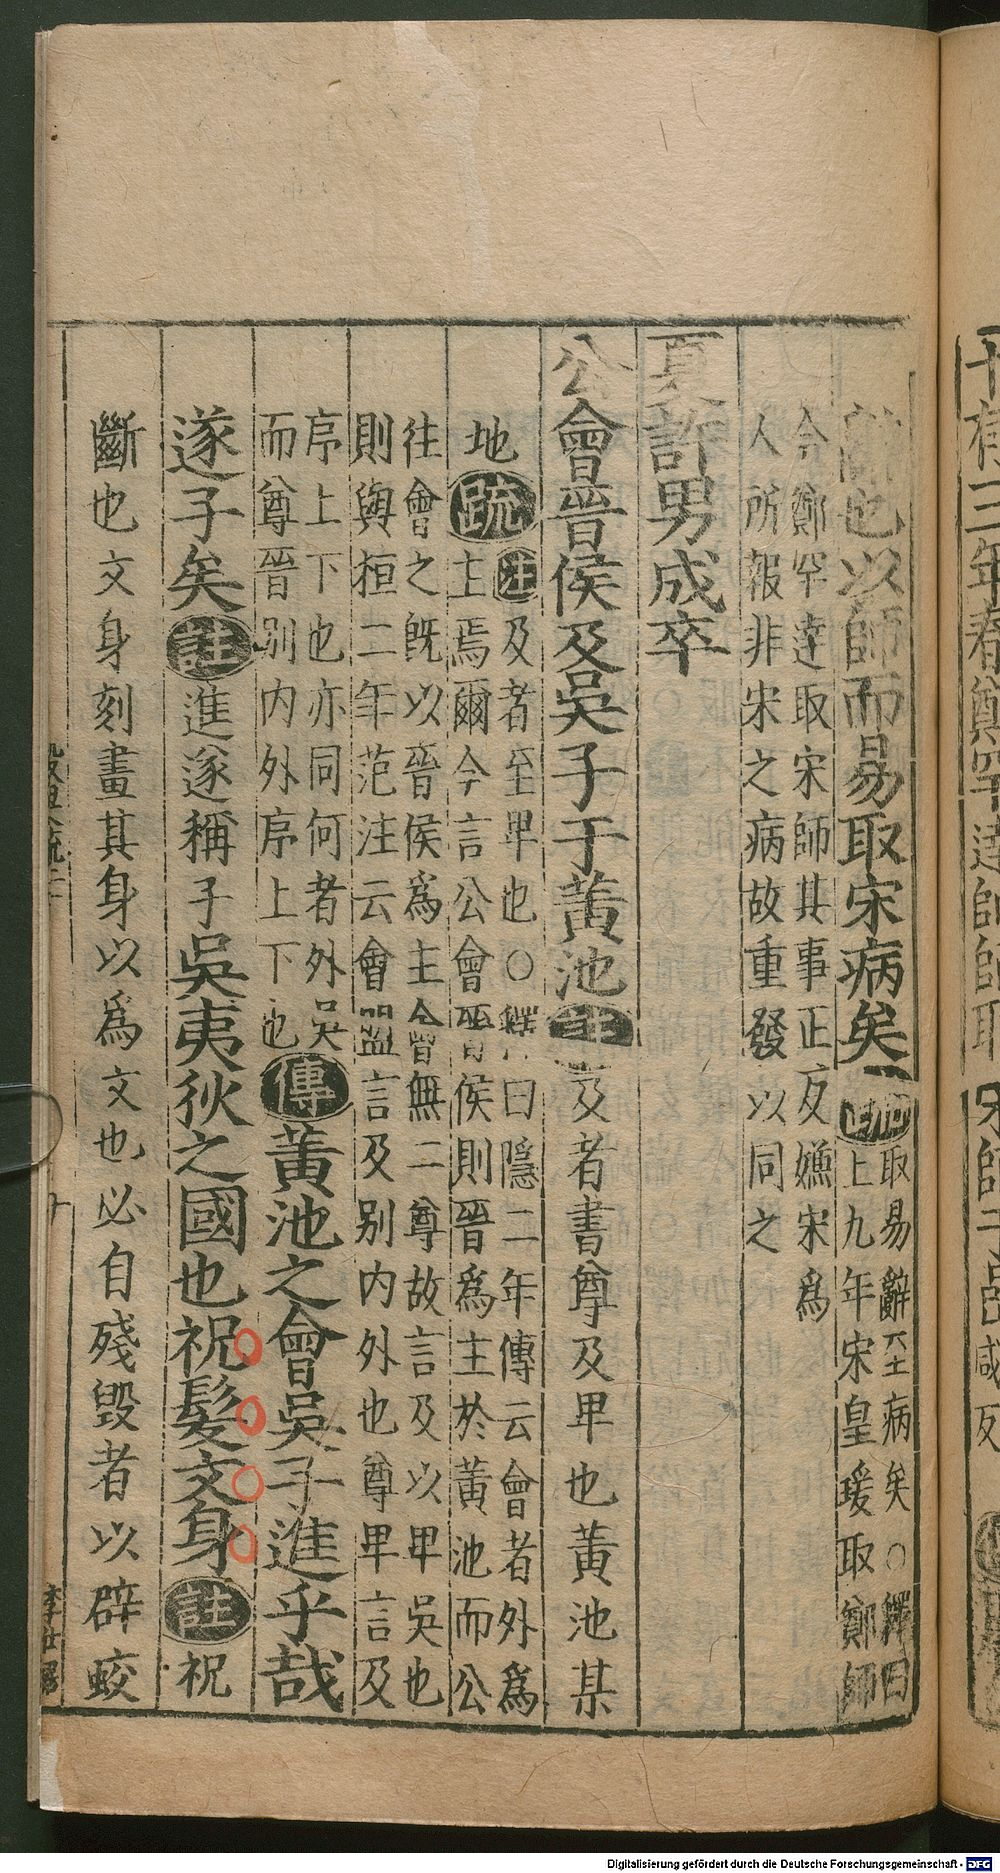 十有三年春鄭罕達帥師取
宋師于嵒
辭也以師而易取宋病矣疏取易辭至病矣○釋曰
上九年宋皇瑗取鄭師
今鄭罕達取宋師其事正反嫌宋爲
人所報非宋之病故重發以同之
夏許男成卒
公會晉侯及吳子于黃池註及者書尊及卑也黃池某
地疏注及者至卑也○釋曰隱二年傳云會者外爲
主焉爾今言公會晉侯則晉爲主於黃池而公
往會之旣以晉侯爲主會無二尊故言及以卑吳也
則與桓二年范注云會盟言及別內外也尊卑言及
序上下也亦同何者外吳
而尊晉別內外序上下也傳黃池之會吳子進乎哉
遂子矣註進遂稱子吳夷狄之國也祝髮文身註祝
斷也文身刻畫其身以爲文也必自殘毀者以辟蛟
Digitalisierung gefördert durch die Deutsche Forschungsgemeinschaft - DFG